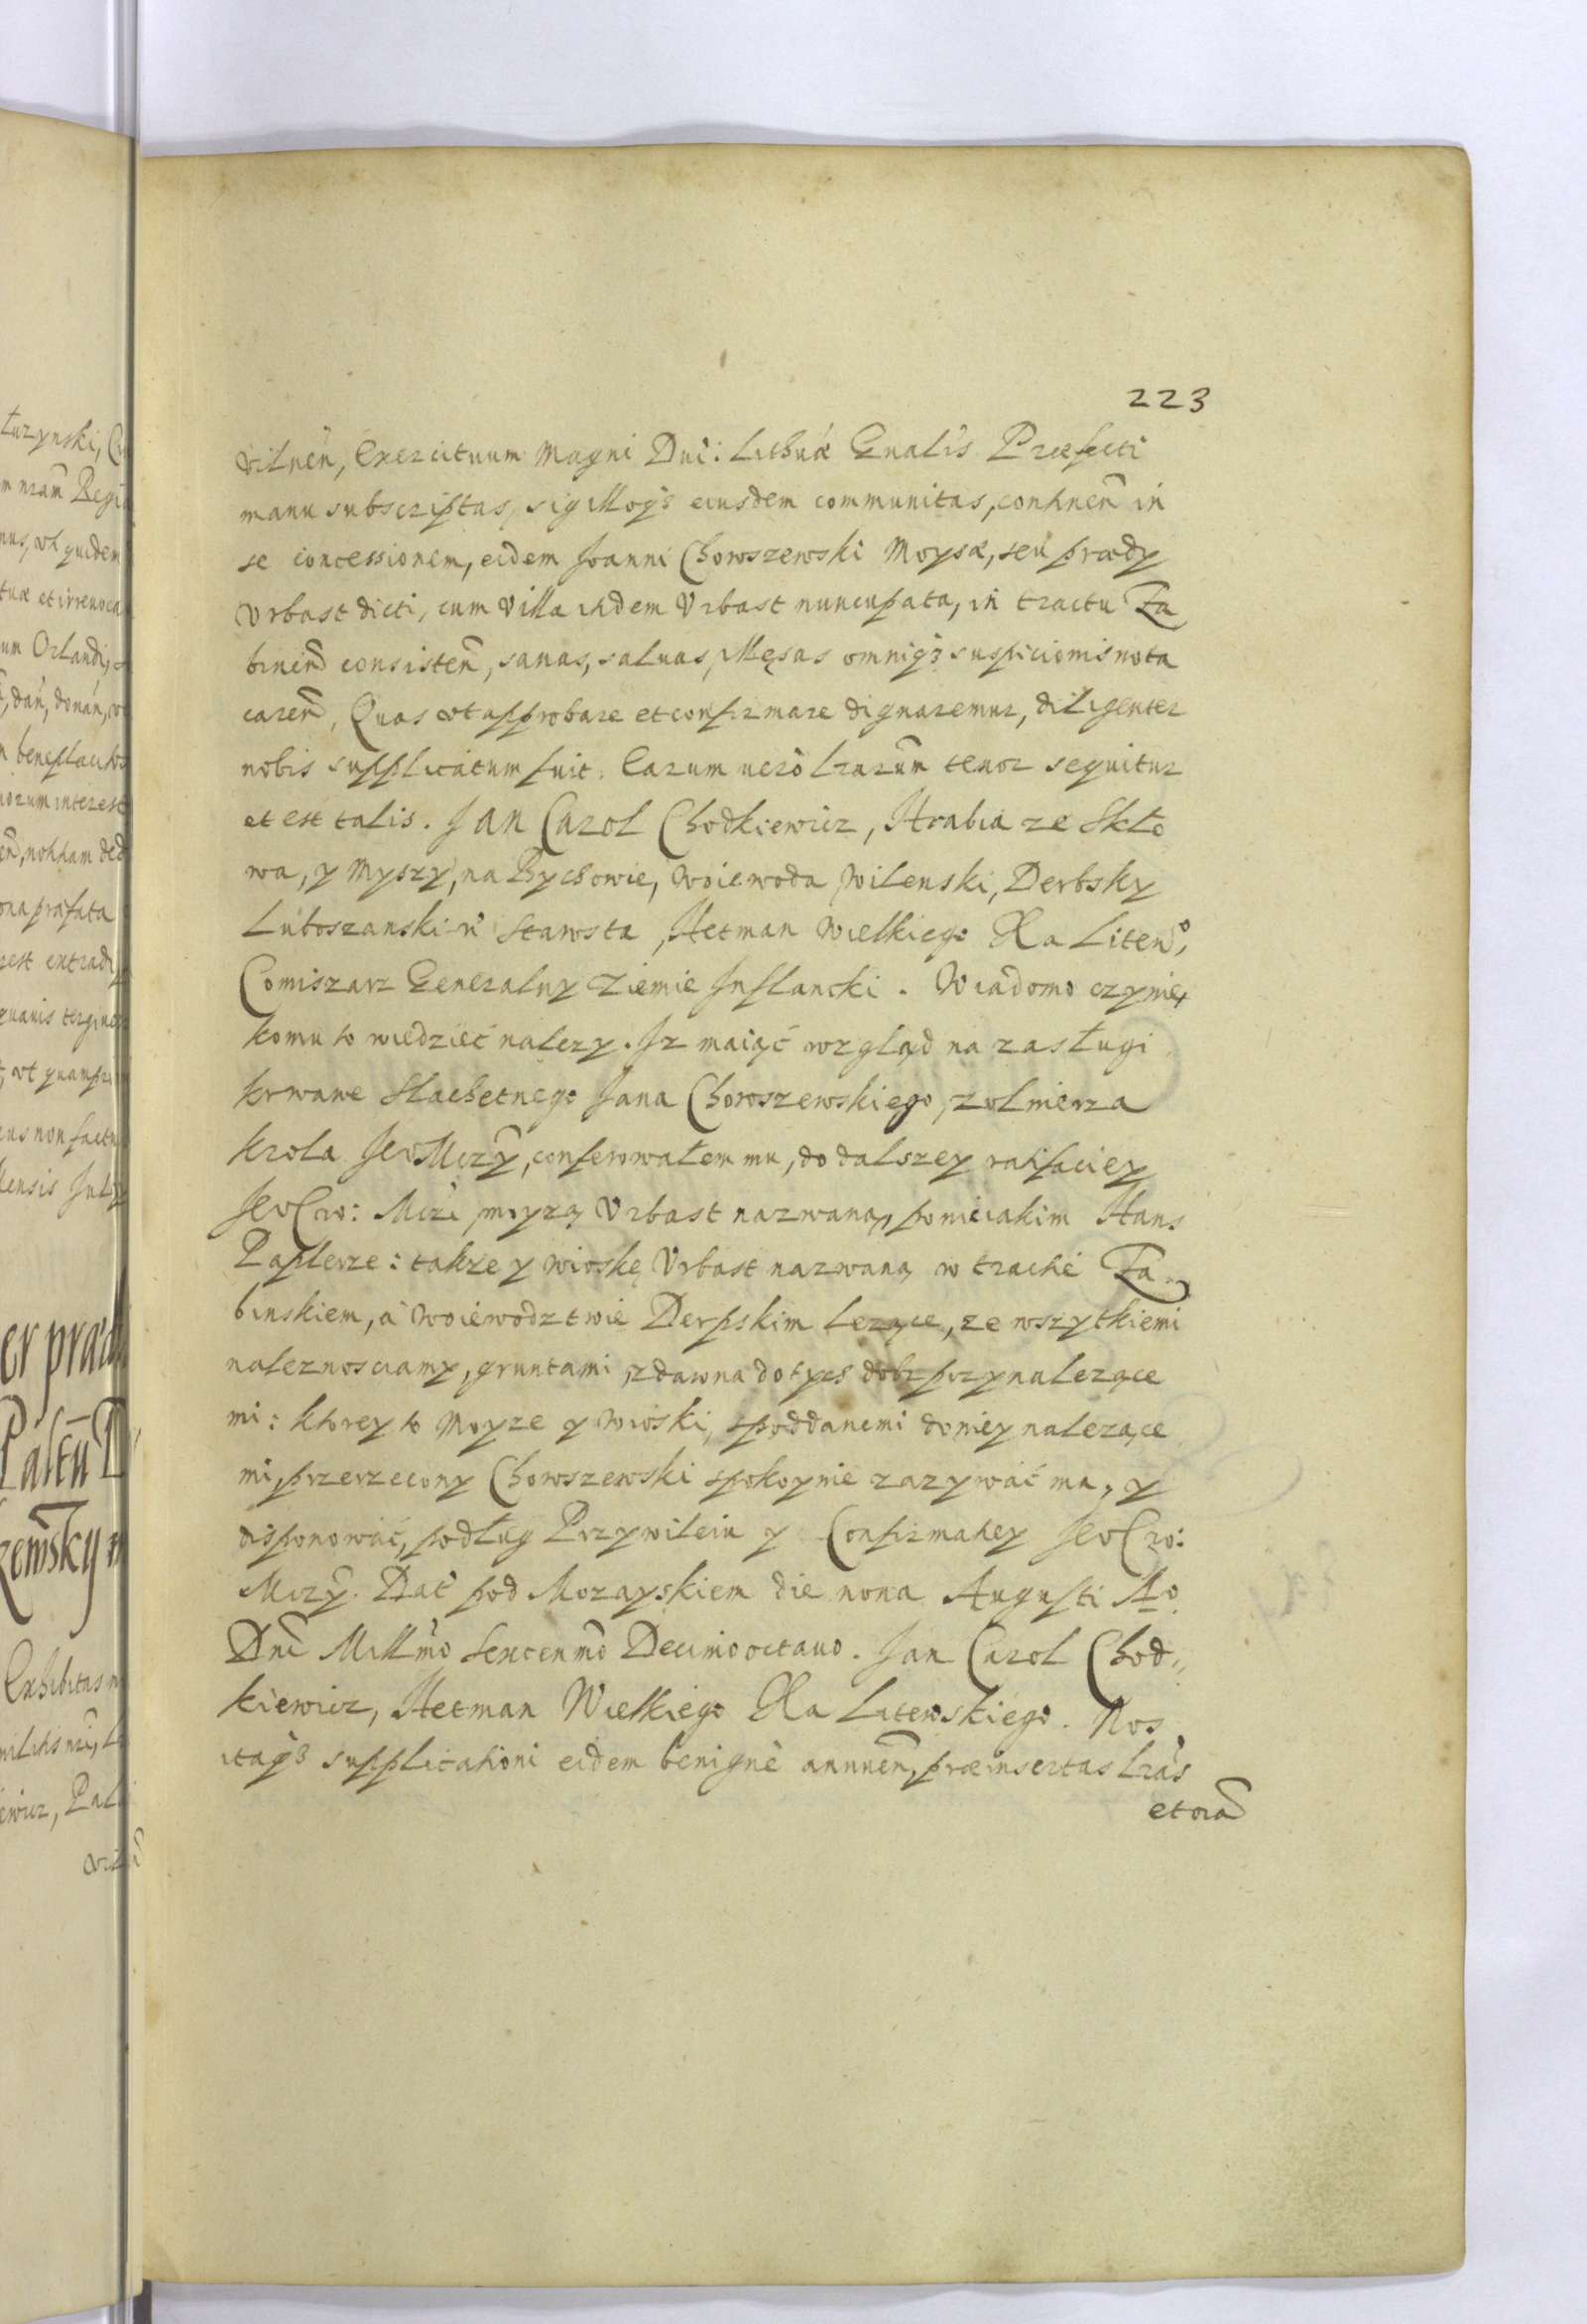 223
vilnen, Exercituum Magni Duci: Lithuæ Gnalis Præfecti
manu subscriptas, sigilloq3 eiusdem communitas, continen in
se concessionem, eidem Joanni Choroszewski Moysæ, seu prædy
Vrbast dicti, cum Villa itidem Vrbast nuncupata, in tractu Za
binen consisten, sanas, saluas, illęsas omniq3 suspicionis nota
caren, Quas vt approbare et confirmare dignaremur, diligenter
nobis supplicatum fuit. Earum uerò lrarum tenor sequitur
et est talis. Jan Carol Chodkiewicz, Hrabia ze Skło
wa, y Myszy, na Bychowie, Woiewoda Wilenski, Derbsky
Luboszanski Starosta, Hetman Wielkiego Xa Liteo,
Comiszarz Generalny Ziemie Inflancki. Wiadomo czynię,
komu to wiedzieć nalezy. Iz maiąć wzgląd na zasługi
krwawe Slachetnego Jana Choroszewskiego, zolnierza
krola Jeo Mczy, conferowałem mu, do dalszey ratifaciey
Jeo Cro: Mczi, moyzą Vrbast nazwaną, po nieiakim Hans
Paplerze: takze y wioskę Vrbast nazwaną w tractie Za
binskiem, a Woiewodztwie Derpskim lezące, ze wszytkiemi
naleznosciamy, gruntami, zdawna do tych dobr przynalezące
mi: ktorey to Moyze y wioski, spoddanemi do niey nalezące
mi, przerzecony Choroszewski spokoynie zazywać ma, y
disponować, podług Przywileiu y Confirmatiey Jeo Cro:
Mczy. Dat pod Mozayskiem die nona Augusti Ao
Dni Millmo Sexcenmo Decimooctauo. Jan Carol Chod
kiewicz, Hetman Wielkiego Xa Litewskiego. Nos
itaq3 supplicationi eidem benignè annuen, præinsertas lras
et oia